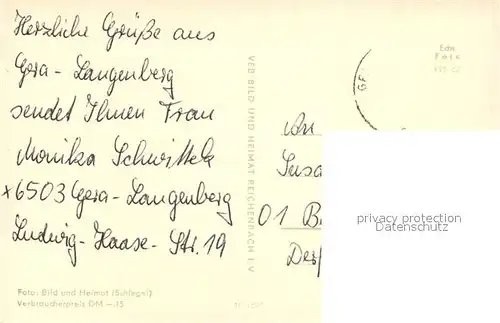 Herzliche Grüße aus
Gera-Langenberg
sendet Ihnen Frau
Monika
x 6503 Gera-Langenberg
Ludwig-Haase-Str. 19
Foto: Bild und Heimat (Schlegel)
Verbraucherpreis DM -.15
VEB BILD UND HEIMAT REICHENBACH I. V.
Echt
Foto
GE
An
Susa
01 B
privacy protection
Datenschutz